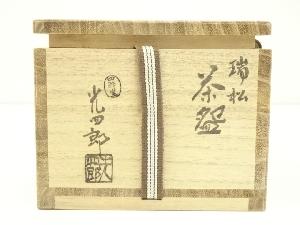 瑞松
茶盌
光四郎